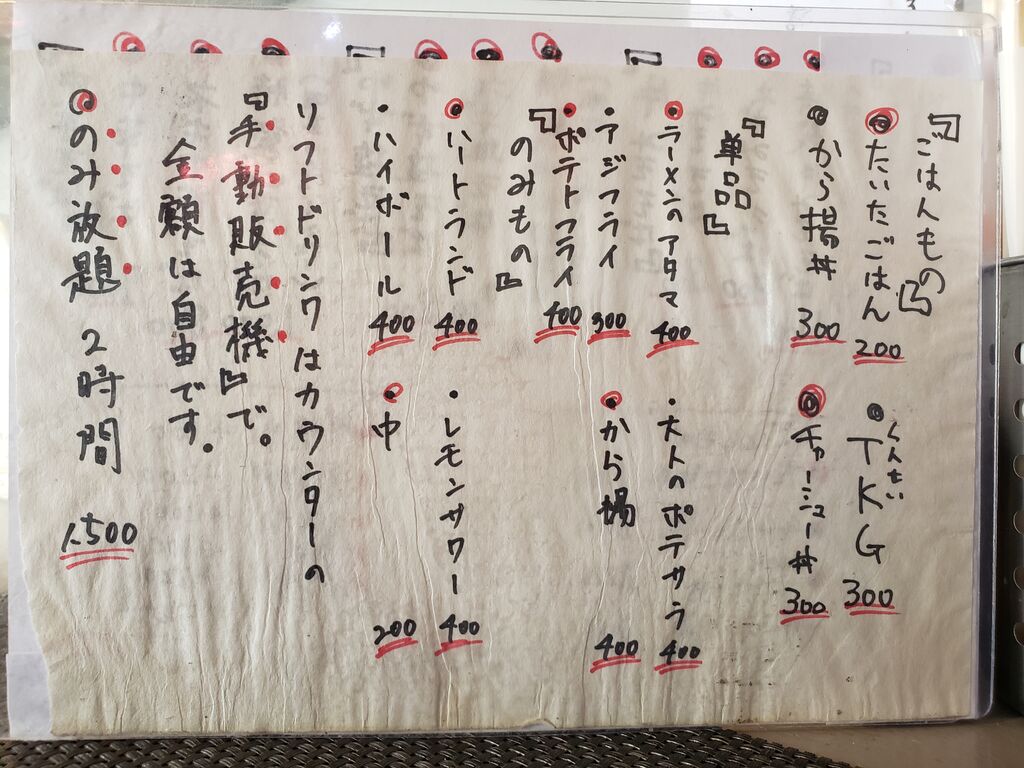 『ごはんもの』
たいたごはん 200
らんたい
TKG 300
から揚丼 300
チャーシュー丼 300
『単品』
ラーメンのアタマ 400
大人のポテサラ 400
・アジフライ 300
から揚 400
ポテトフライ 400
『のみもの』
ハートランド 400
・レモンサワー 400
・ハイボール 400
中 200
ソフトドリンクはカウンターの
『手動販売機』で。
金額は自由です。
のみ放題 2時間 1,500